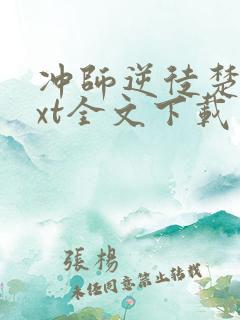 冲師逆徒楚
xt全文下載
張楊
未经同意禁止转载